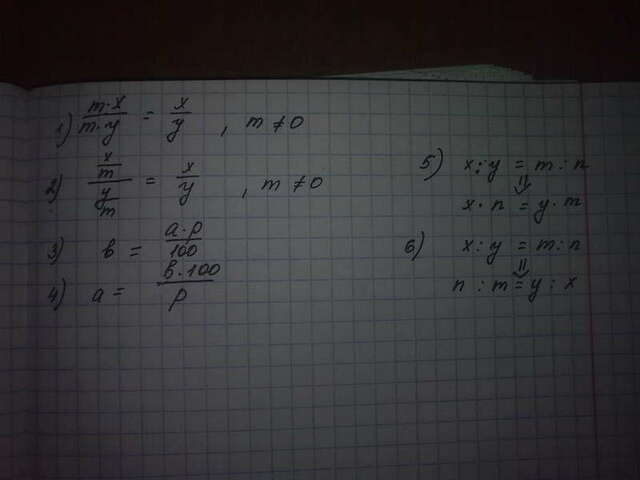 1) m·x/m·y = x/y , m ≠ 0
2) x/m / y/m = x/y , m ≠ 0
3) b = a·p/100
4) a = b·100/p
5) x:y = m:n
⇓
x·n = y·m
6) x:y = m:n
⇓
n:m = y:x